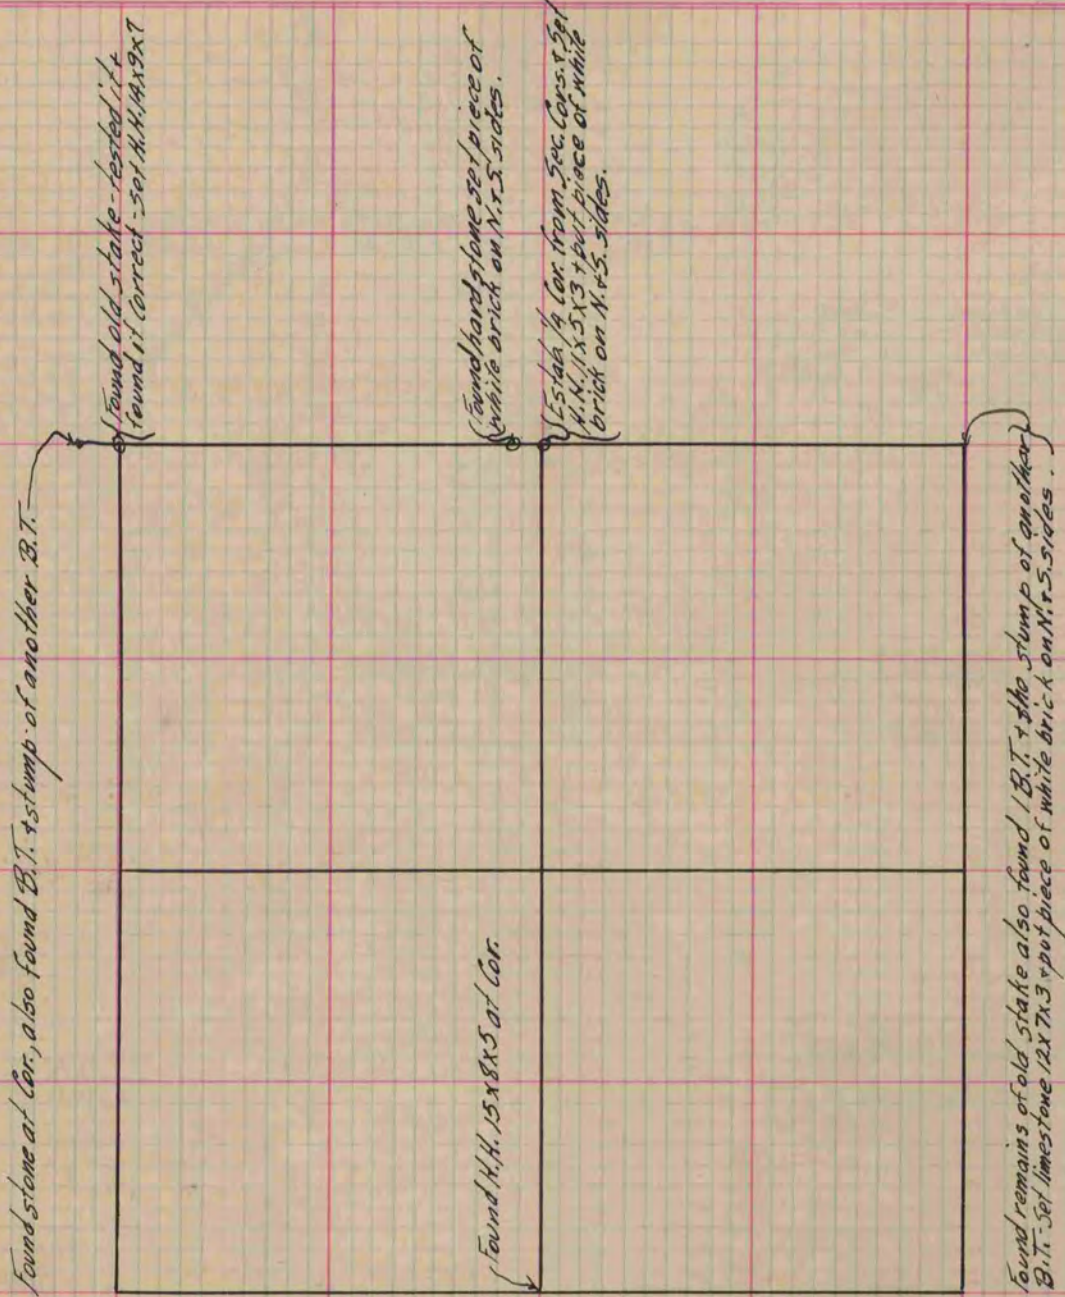 Found stone at Cor., also found B.T. + stump of another B.T.
Found old stake - tested it +
found it correct - set H.H. 14x9x7
Found hard stone set piece of
white brick on N. + S. sides.
Estab. 1/4 Cor. from Sec. Cors. + Set
H.H. 11x5x3 + put piece of white
brick on N. + S. sides.
Found H.H. 15x8x5 at Cor.
Found remains of old stake also found 1 B.T. + the stump of another
B.T. - Set limestone 12x7x3 + put piece of white brick on N. + S. sides.